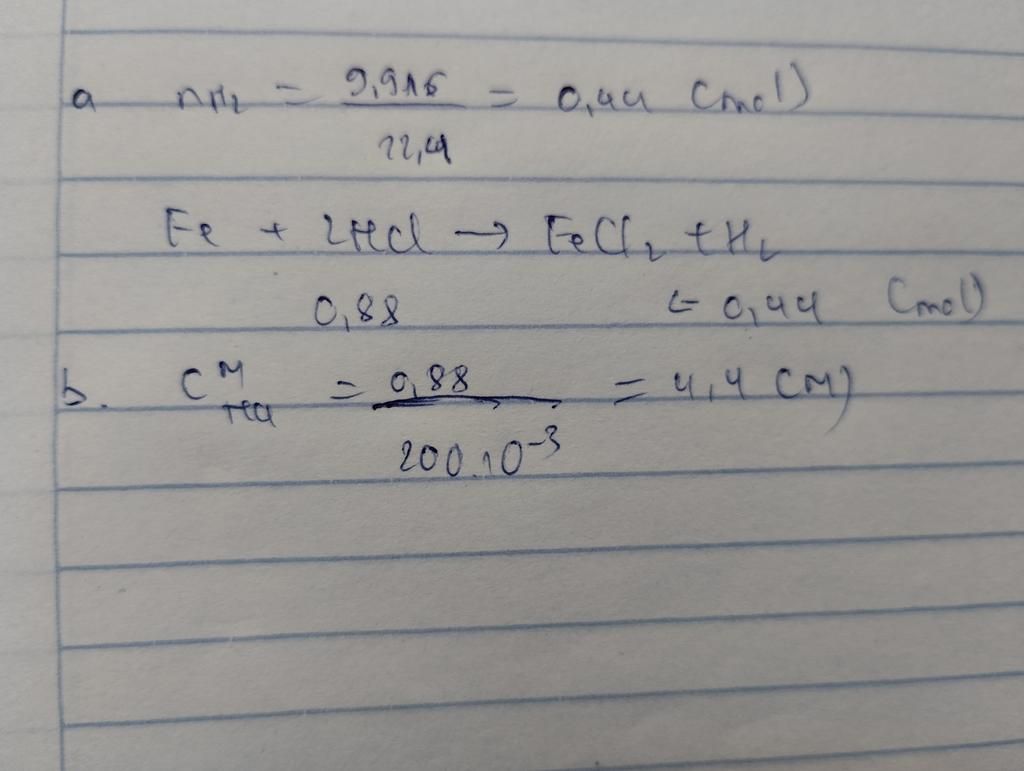 a nH₂ = 9,916 / 22,4 = 0,44 (mol)
Fe + 2HCl → FeCl₂ + H₂
0,88 ← 0,44 (mol)
b. C^M_HCl = 0,88 / 200.10⁻³ = 4,4 (M)